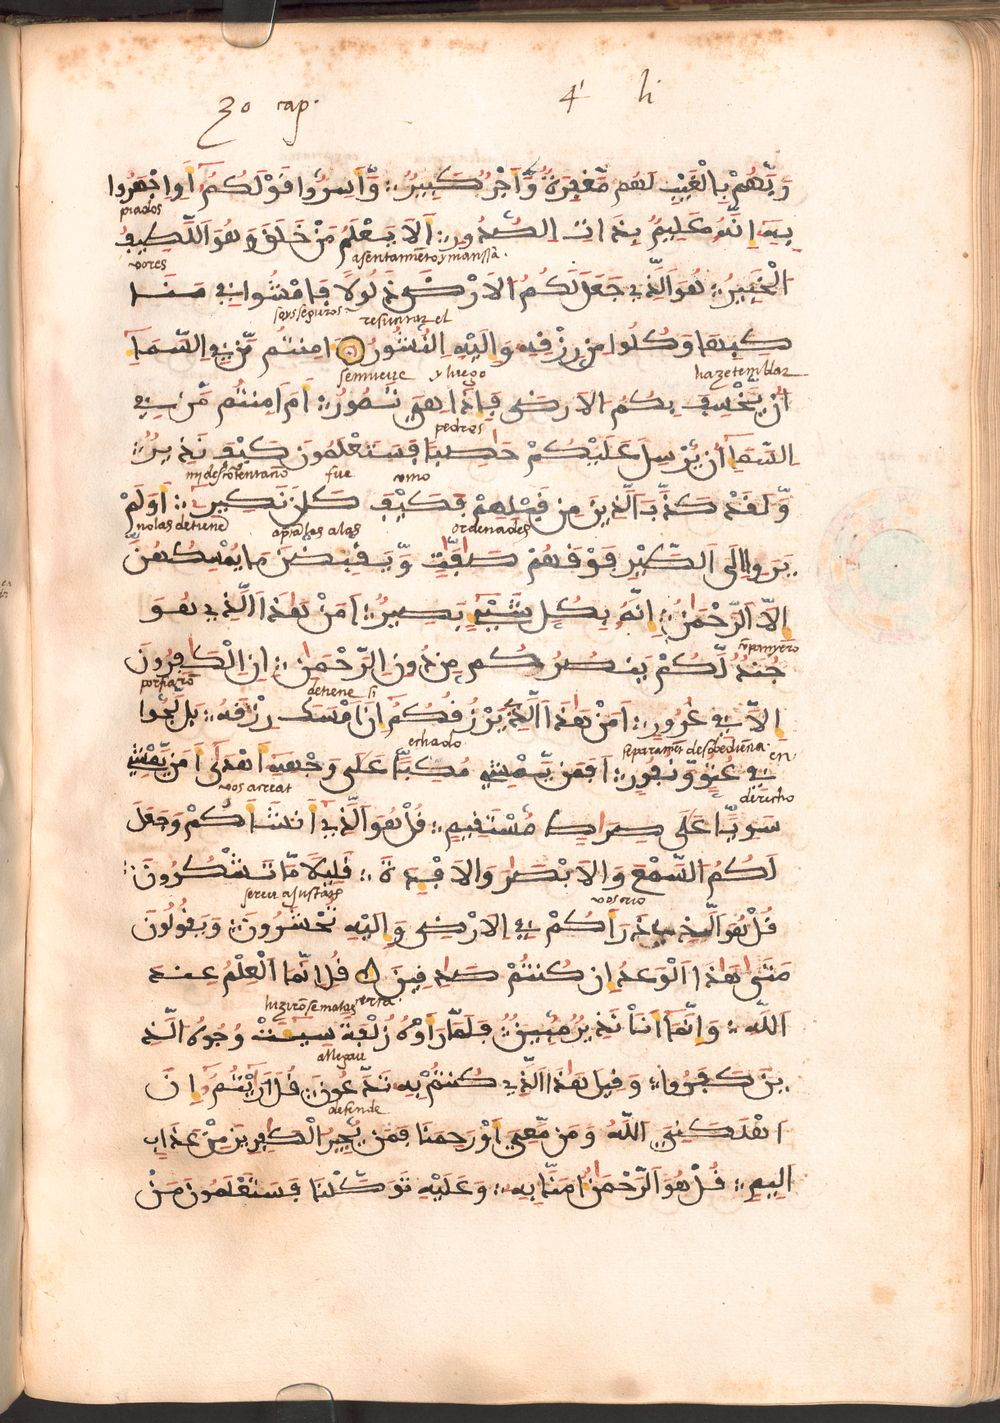 30 cap. 4 li
رَبَّهُمْ بِالْغَيْبِ لَهُم مَّغْفِرَةٌ وَّأَجْرٌ كَبِيرٌ وَّأَسِرُّوا قَوْلَكُمْ أَوِ اجْهَرُوا
piados
بِهِ إِنَّهُ عَلِيمٌ بِذَاتِ الصُّدُورِ أَلَا يَعْلَمُ مَنْ خَلَقَ وَهُوَ اللَّطِيفُ
vores asentamieto y manssa.
الْخَبِيرُ هُوَ الَّذِي جَعَلَ لَكُمُ الْأَرْضَ ذَلُولًا فَامْشُوا فِي مَنَا
seys seguros resuntar el
كِبِهَا وَكُلُوا مِن رِّزْقِهِ وَإِلَيْهِ النُّشُورُ ءَامِنتُم مَّن فِي السَّمَاءِ
semueve y luego haze temblar
أَنْ يَّخْسِفَ بِكُمُ الْأَرْضَ فَإِذَا هِيَ تَمُورُ أَمْ أَمِنتُم مَّن فِي
pedres
السَّمَاءِ أَن يُّرْسِلَ عَلَيْكُمْ حَاصِبًا فَسَتَعْلَمُونَ كَيْفَ نَذِيرِ
fue como
وَلَقَدْ كَذَّبَ الَّذِينَ مِن قَبْلِهِمْ فَكَيْفَ كَانَ نَكِيرِ أَوَلَمْ
nolas detiene alas ordenades
يَرَوْا إِلَى الطَّيْرِ فَوْقَهُمْ صَافَّاتٍ وَّيَقْبِضْنَ مَا يُمْسِكُهُنَّ
إِلَّا الرَّحْمَنُ إِنَّهُ بِكُلِّ شَيْءٍ بَصِيرٌ أَمَّنْ هَذَا الَّذِي هُوَ
جُندٌ لَّكُمْ يَنصُرُكُم مِّن دُونِ الرَّحْمَنِ إِنِ الْكَافِرُونَ
detiene si
إِلَّا فِي غُرُورٍ أَمَّنْ هَذَا الَّذِي يَرْزُقُكُمْ إِنْ أَمْسَكَ رِزْقَهُ بَل لَّجُّوا
echado en
فِي عُتُوٍّ وَّنُفُورٍ أَفَمَن يَّمْشِي مُكِبًّا عَلَى وَجْهِهِ أَهْدَى أَمَّن يَّمْشِي
vos arreat derecho
سَوِيًّا عَلَى صِرَاطٍ مُّسْتَقِيمٍ قُلْ هُوَ الَّذِي أَنشَأَكُمْ وَجَعَلَ
لَكُمُ السَّمْعَ وَالْأَبْصَارَ وَالْأَفْئِدَةَ قَلِيلًا مَّا تَشْكُرُونَ
قُلْ هُوَ الَّذِي ذَرَأَكُمْ فِي الْأَرْضِ وَإِلَيْهِ تُحْشَرُونَ وَيَقُولُونَ
مَتَى هَذَا الْوَعْدُ إِن كُنتُمْ صَادِقِينَ قُلْ إِنَّمَا الْعِلْمُ عِندَ
اللَّهِ وَإِنَّمَا أَنَا نَذِيرٌ مُّبِينٌ فَلَمَّا رَأَوْهُ زُلْفَةً سِيئَتْ وُجُوهُ الَّذِ
ينَ كَفَرُوا وَقِيلَ هَذَا الَّذِي كُنتُم بِهِ تَدَّعُونَ قُلْ أَرَأَيْتُمْ إِنْ
defende
أَهْلَكَنِيَ اللَّهُ وَمَن مَّعِيَ أَوْ رَحِمَنَا فَمَن يُّجِيرُ الْكَافِرِينَ مِنْ عَذَابٍ
أَلِيمٍ قُلْ هُوَ الرَّحْمَنُ ءَامَنَّا بِهِ وَعَلَيْهِ تَوَكَّلْنَا فَسَتَعْلَمُونَ مَنْ